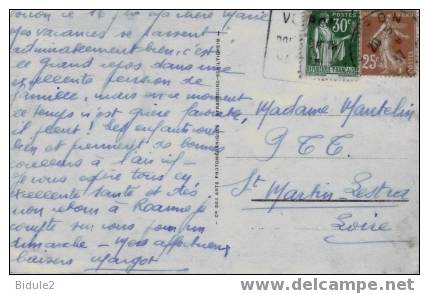 Marie
Mes vacances se passent
admirablement bien, c'est
le grand repos dans une
excellente pension de
famille, mais en ce moment
ce temps n'est guère favorable,
il pleut ! Les enfants vont
bien et prennent de bonnes
couleurs à l'air vif -
Je vous espère tous en
excellente santé et dès
mon retour à Roanne je
compte sur vous pour un
dimanche - Mes affectueux
baisers Margot
POSTES
30c
25c
Madame Mantelin
P T T.
St Martin-Lestra
Loire
Bidule2
delcampe.net